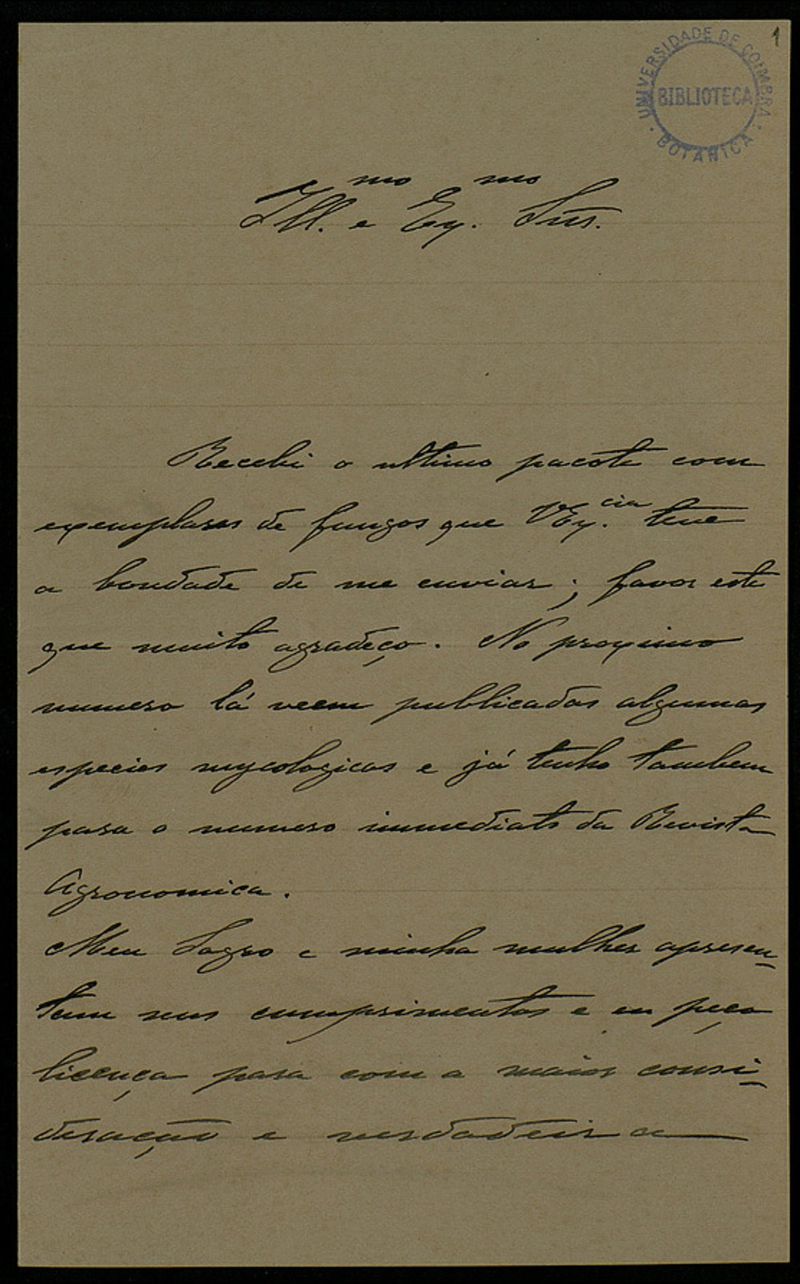 1
UNIVERSIDADE DE COIMBRA
BIBLIOTECA
BOTANICA
Ill.mo e Ex.mo Snr.
Recebi o ultimo pacote com
exemplares de fungos que V Ex.cia teve
a bondade de me enviar; favor este
que muito agradeço. No proximo
numero lá veem publicadas algumas
especies mycologicas e já tenho tambem
para o numero immediato da Revista
Agronomica.
Meu Sogro e minha mulher apresen-
tam seus cumprimentos e eu peço
licença para com a maior consi-
deração e verdadeira